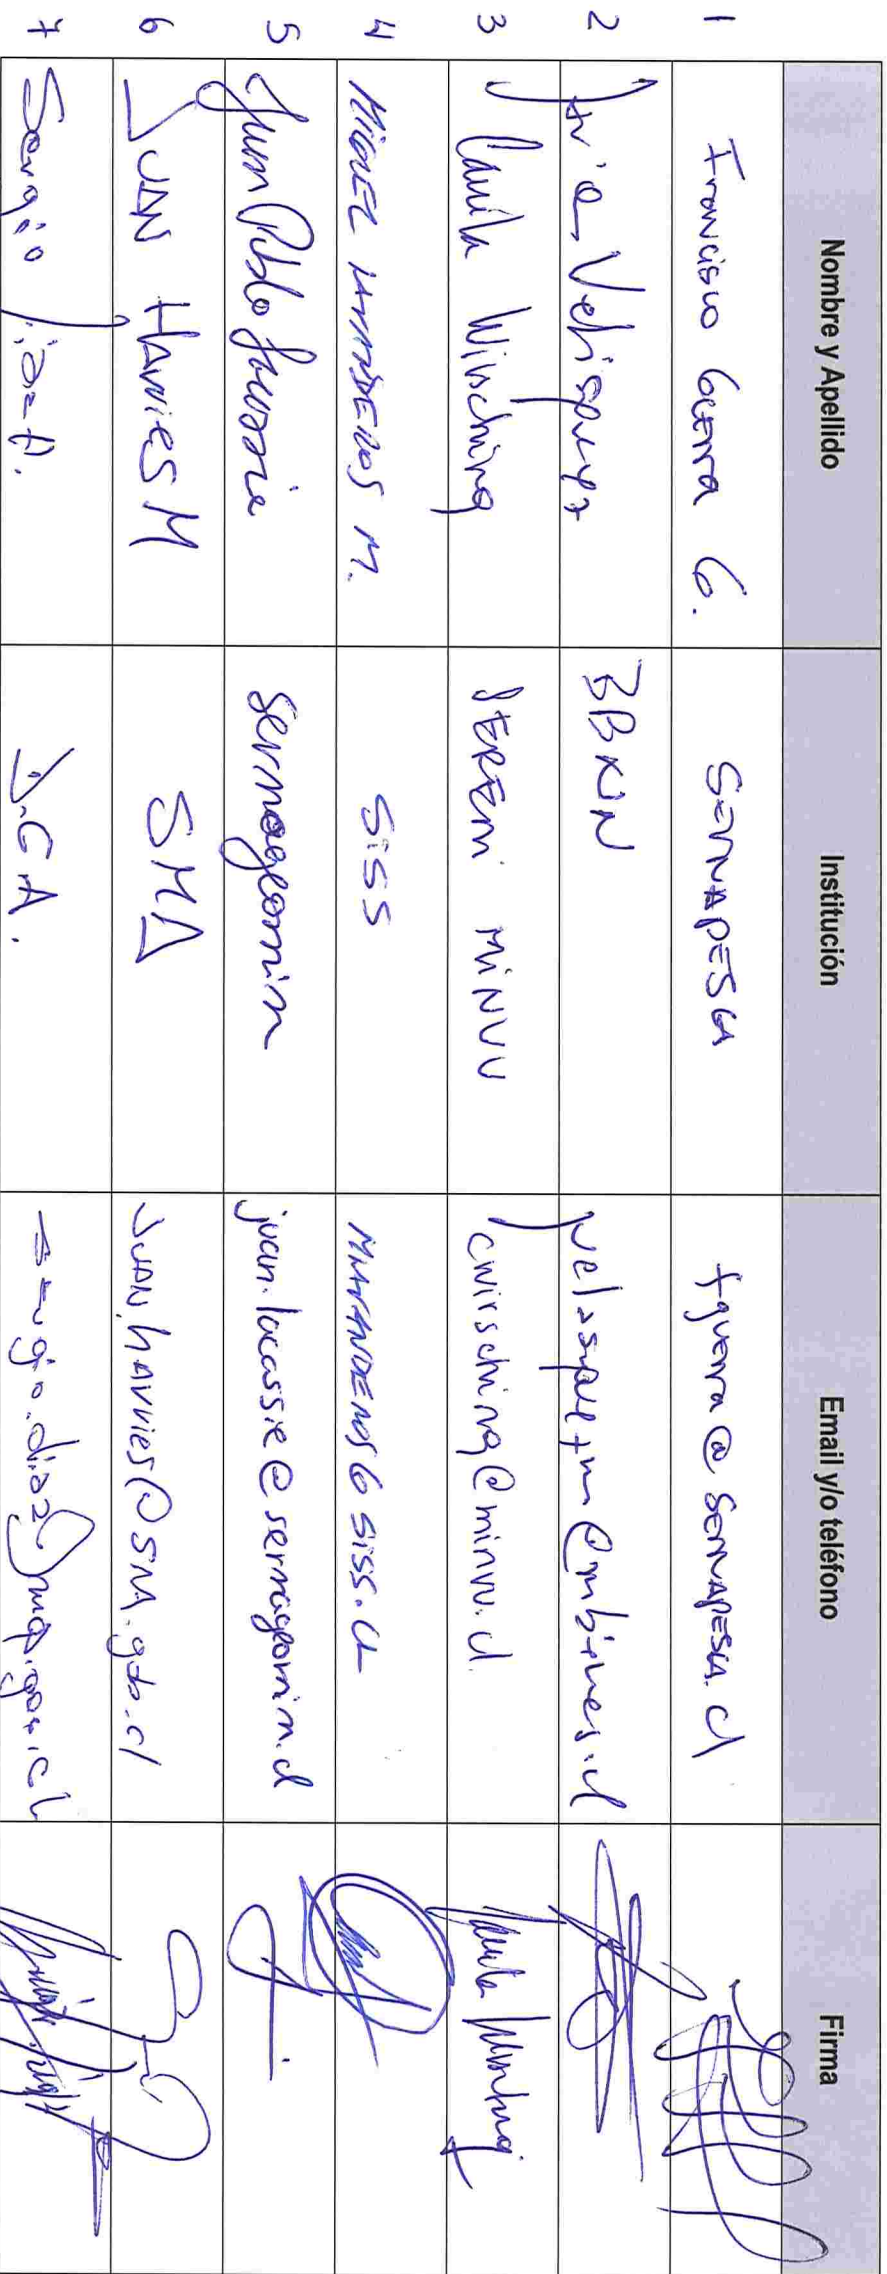 Nombre y Apellido Institución Email y/o teléfono Firma
1 Francisco Guerra G. SERNAPESCA fguerra@sernapesca.cl
2 Velasquez
3 Camila Wirsching SEREMI MINVU cwirsching@minvu.cl
4 MIGUEL M. SISS
5 Juan Pablo Lacassie Sernageomin juan.lacassie@sernageomin.cl
6 JUAN HARRIES M SMA JUAN.hARRies@SMA.gob.cl
7 Sergio Díaz A. D.G.A. sergio.diaz@mop.gov.cl